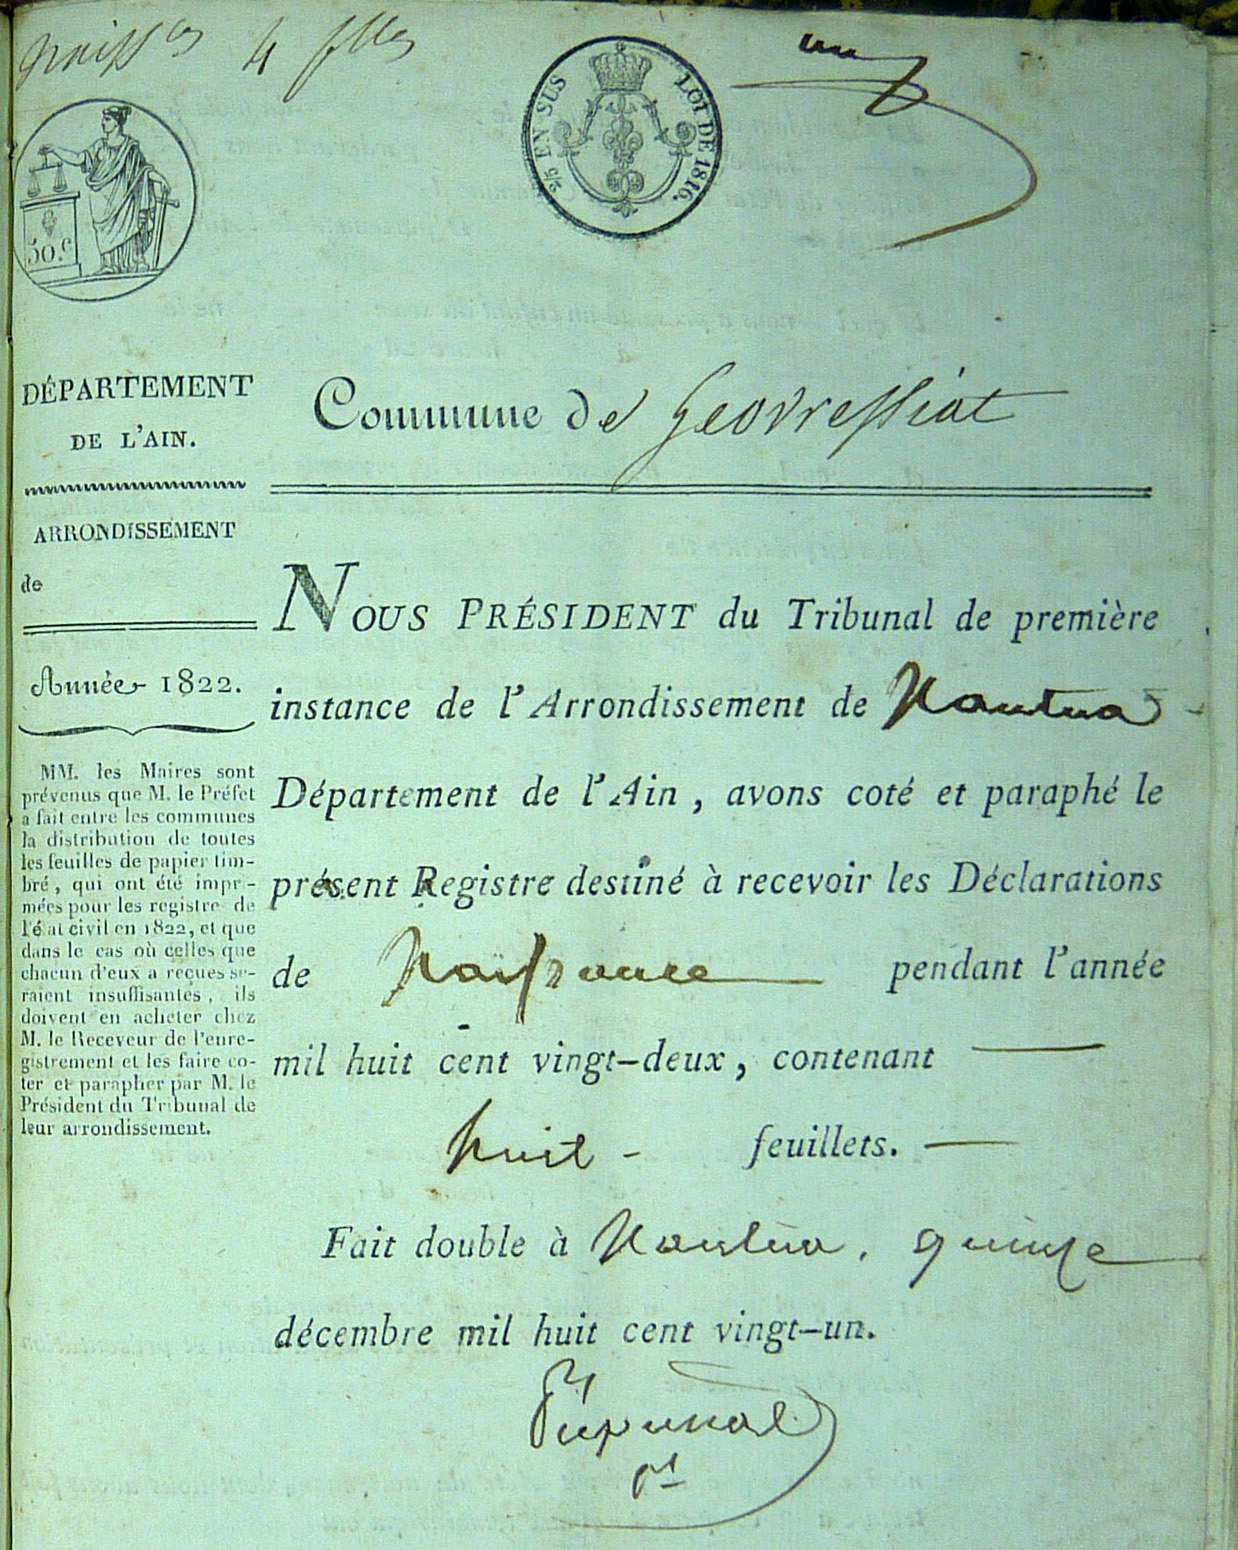 naiss.ces 4 flles
un
2/5 EN SUS
LOI DE 1816.
50.c
DÉPARTEMENT
DE L'AIN.
ARRONDISSEMENT
de
Année 1822.
MM. les Maires sont
prévenus que M. le Préfet
a fait entre les communes
la distribution de toutes
les feuilles de papier tim-
bré, qui ont été impri-
mées pour les registre de
l'état civil en 1822, et que
dans le cas où celles que
chacun d'eux a reçues se-
raient insuffisantes, ils
doivent en acheter chez
M. le Receveur de l'enre-
gistrement et les faire co-
ter et parapher par M. le
Président du Tribunal de
leur arrondissement.
Commune de Geovressiat
NOUS PRÉSIDENT du Tribunal de première
instance de l'Arrondissement de Nantua
Département de l'Ain, avons coté et paraphé le
présent Registre destiné à recevoir les Déclarations
de Naissance pendant l'année
mil huit cent vingt-deux, contenant
huit feuillets.
Fait double à Nantua, quinze
décembre mil huit cent vingt-un.